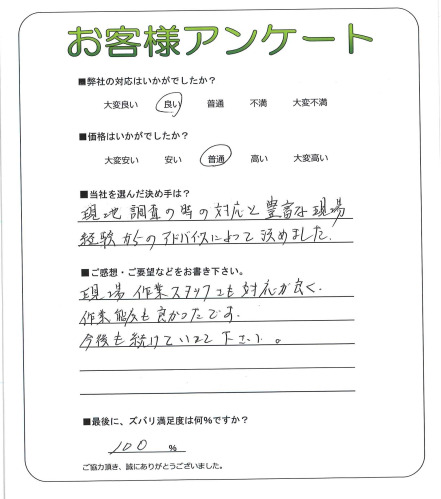 お客様アンケート
■弊社の対応はいかがでしたか？
大変良い 良い 普通 不満 大変不満
■価格はいかがでしたか？
大変安い 安い 普通 高い 大変高い
■当社を選んだ決め手は？
現地調査の時の対応と豊富な現場
経験からのアドバイスによって決めました.
■ご感想・ご要望などをお書き下さい。
現場作業スタッフも対応が良く.
作業能力も良かったです.
今後も続けていって下さい。
■最後に、ズバリ満足度は何%ですか？
100 %
ご協力頂き、誠にありがとうございました。